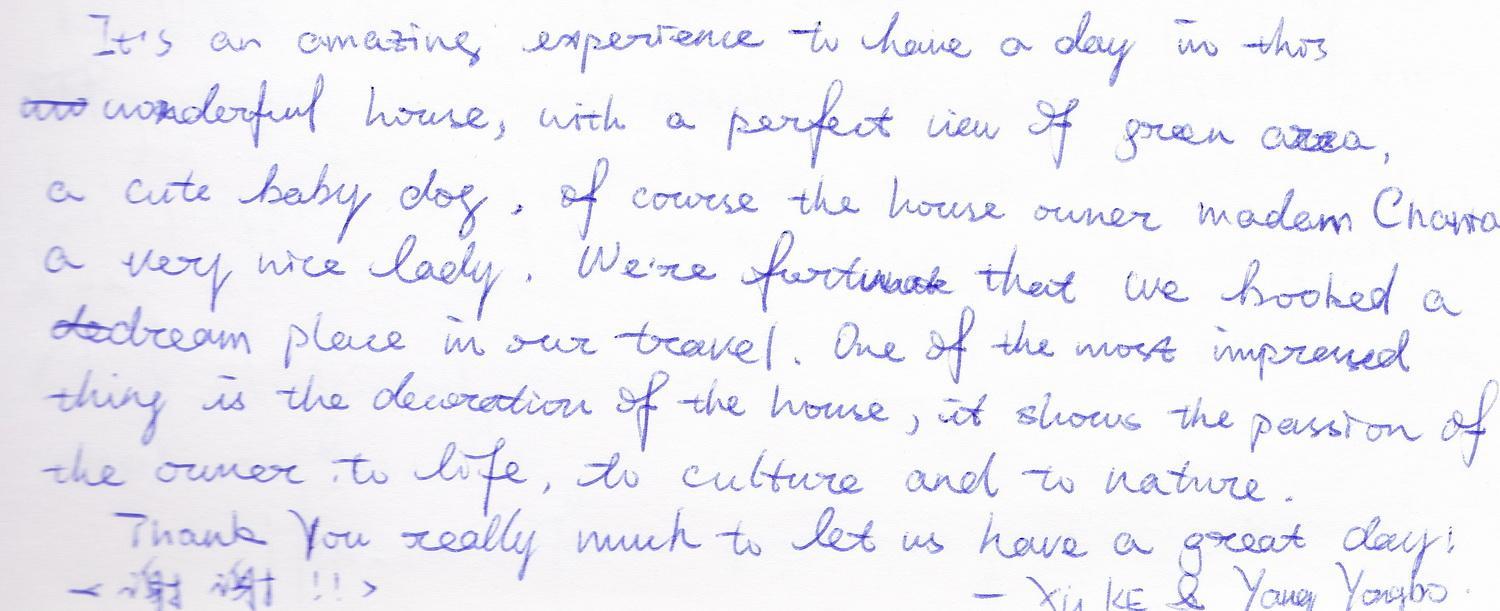 It's an amazing experience to have a day in this
wonderful house, with a perfect view of green area,
a cute baby dog, of course the house owner madam
a very nice lady. We're fortunate that we booked a
dream place in our travel. One of the most impressed
thing is the decoration of the house, it shows the passion of
the owner to life, to culture and to nature.
Thank You really much to let us have a great day!
<谢谢!!> - Xu KE & Yang Yongbo.